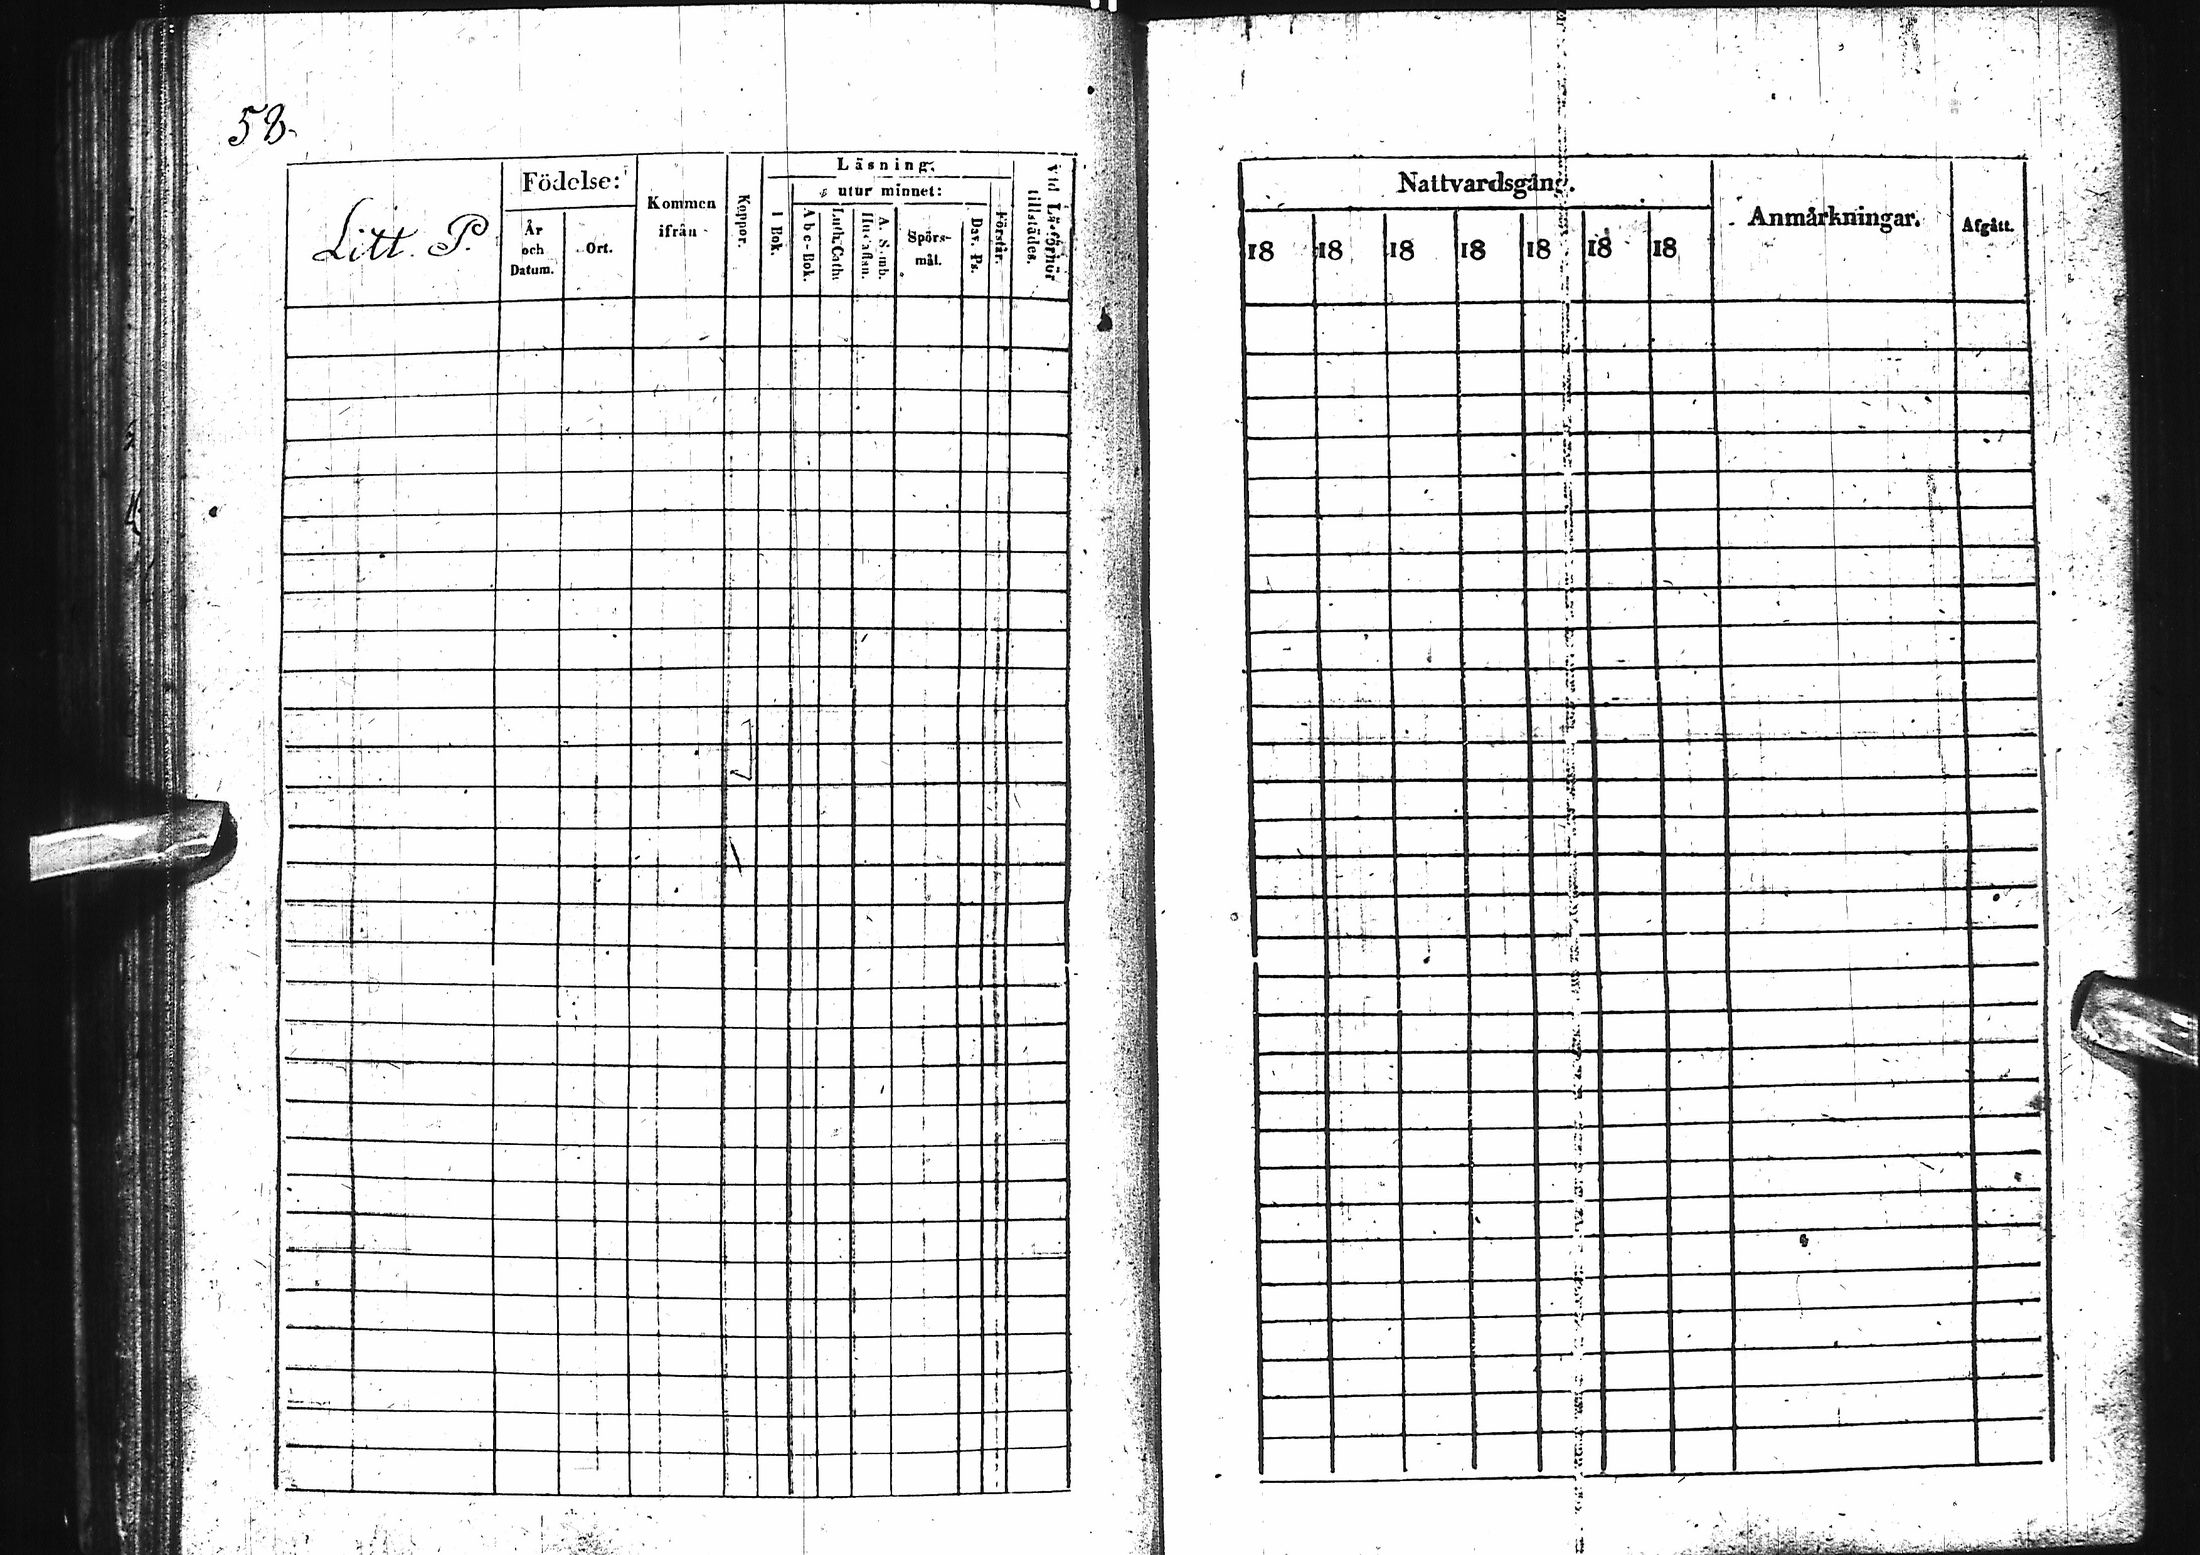 58.
Litt. P.
Födelse:
År
och
Datum.
Ort.
Kommen
ifrån
Koppor.
Läsning.
utur minnet:
I Bok.
Abc-Bok.
Luth. Cath.
Hustaflan.
A. Symb.
Spörs-
mål.
Dav. Ps.
Förstår.
Vid Läsförhör
tillstädes.
Nattvardsgång.
18 18 18 18 18 18 18
Anmårkningar.
Afgått.